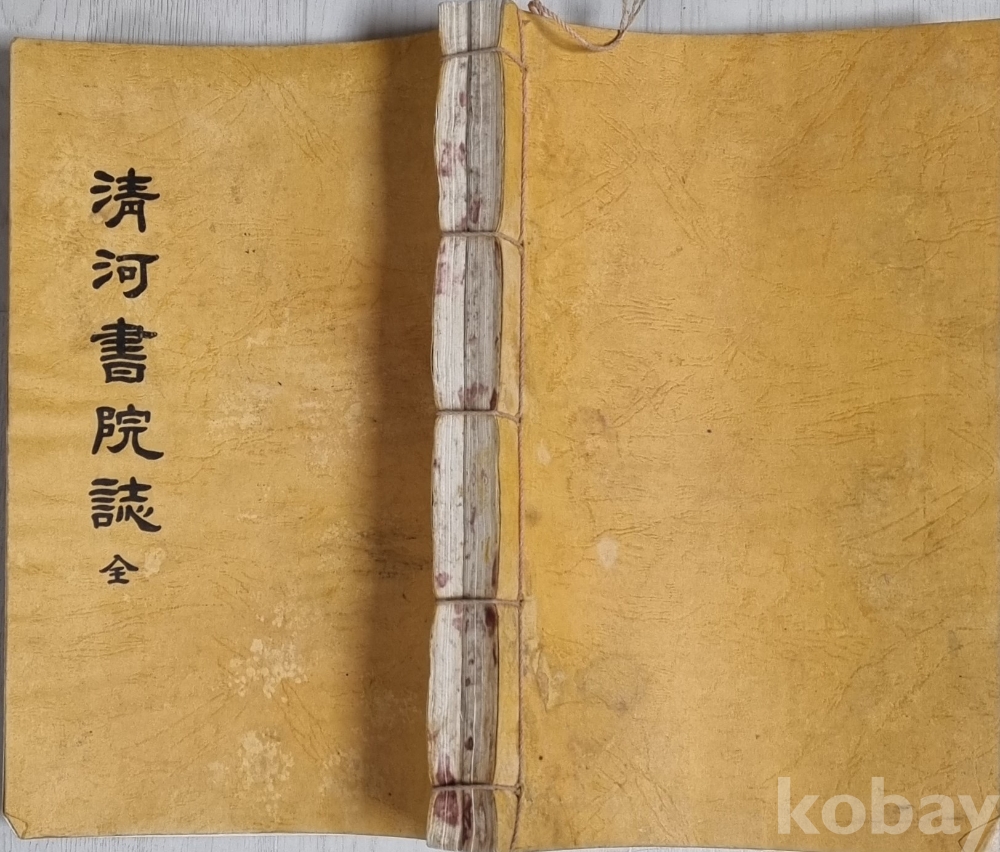 淸河書院誌 全
kobay